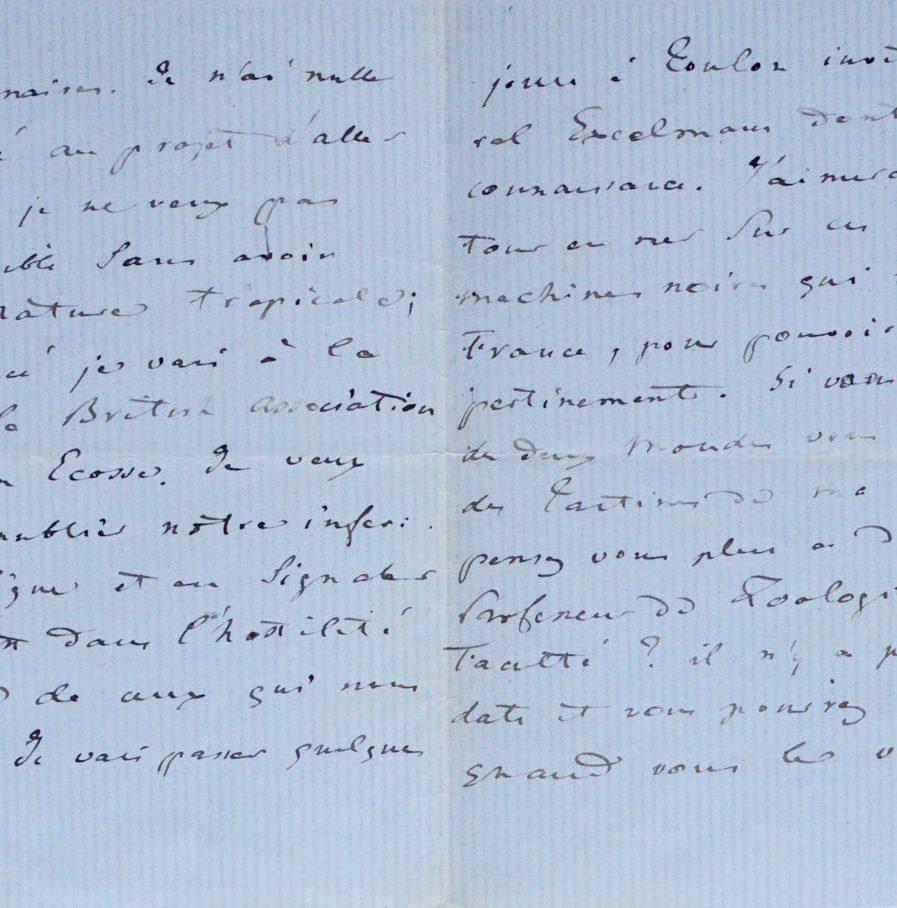 naises. Je n'ai nulle
é au projet d'aller
je ne veux pas
ible sans avoir
nature tropicale;
je vais à la
la British association
n Ecosse. Je veux
publier notre inferi.
igne et en signaler
dans l'hostilité
de ceux qui nous
Je vais passer quelques
jours à Toulon invi
ral Excelmans dont
connaissance. J'aimera
tour en mer sur ces
machines noires qui
France, pour pouvoir
pertinement. Si vous
des deux Mondes vous
des Tartines de ma
pensez vous plus a
Professeur de Zoologi
Faculté ? il n'y a p
date et vous pourrez
quand vous les v